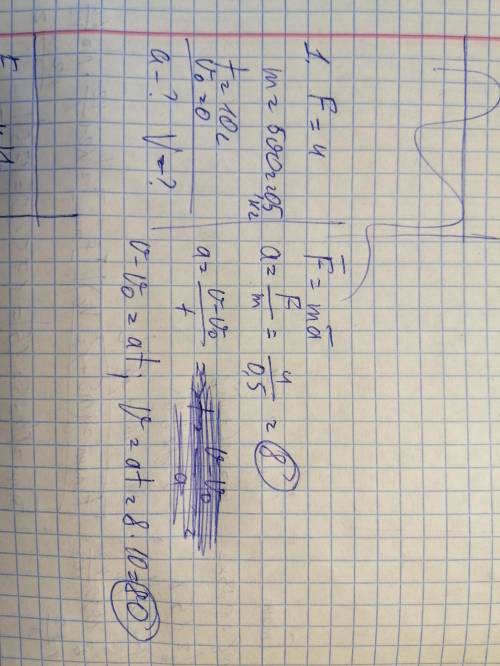 1. F = 4
m = 500г = 0,5 кг
t = 10c
v₀ = 0
a - ? V - ?
F̄ = mā
a = F/m = 4/0,5 = 8
a = (v-v₀)/t =
v-v₀ = at; v = at = 8 · 10 = 80